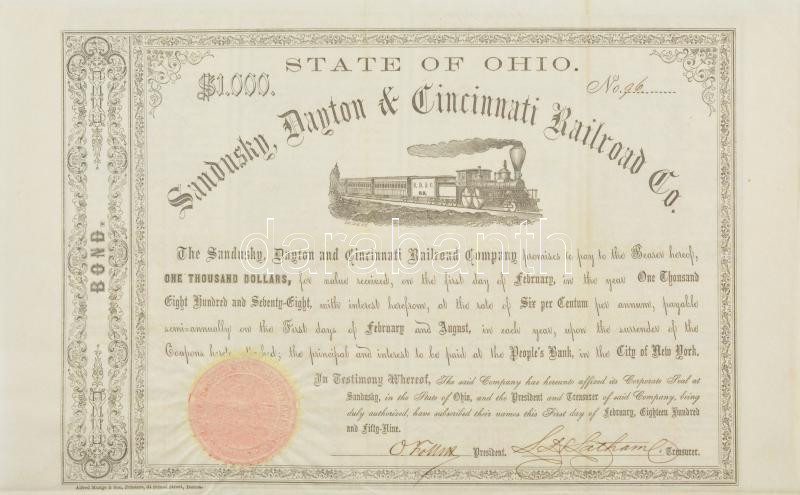 STATE OF OHIO.
$1,000.
No. 96
Sandusky, Dayton & Cincinnati Railroad Co.
S. D. & C. R.R.
BOND.
The Sandusky, Dayton and Cincinnati Railroad Company promises to pay to the Bearer hereof,
ONE THOUSAND DOLLARS, for value received, on the first day of February, in the year One Thousand
Eight Hundred and Seventy-Eight, with interest hereon, at the rate of Six per Centum per annum, payable
semi-annually on the First days of February and August, in each year, upon the surrender of the
Coupons hereto; the principal and interest to be paid at the People's Bank, in the City of New York.
In Testimony Whereof, The said Company has hereunto affixed its Corporate Seal at
Sandusky, in the State of Ohio, and the President and Treasurer of said Company, being
duly authorized, have subscribed their names this First day of February, Eighteen Hundred
and Fifty-Nine.
O Follett President. Latham Treasurer.
Alfred Mudge & Son, Printers, 34 School Street, Boston.
darabanth